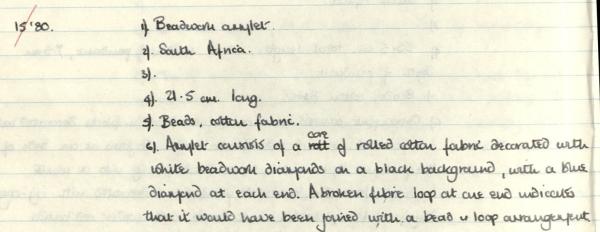 15'80. 1). Beadwork armlet.
2). South Africa.
3).
4). 21.5 cm. long.
5). Beads, cotton fabric.
6). Armlet consists of a core of rolled cotton fabric decorated with
white beadwork diamonds on a black background, with a blue
diamond at each end. A broken fibre loop at one end indicates
that it would have been joined with a bead & loop arrangement